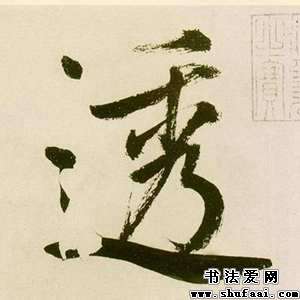 透
书法爱网
www.shufaai.com